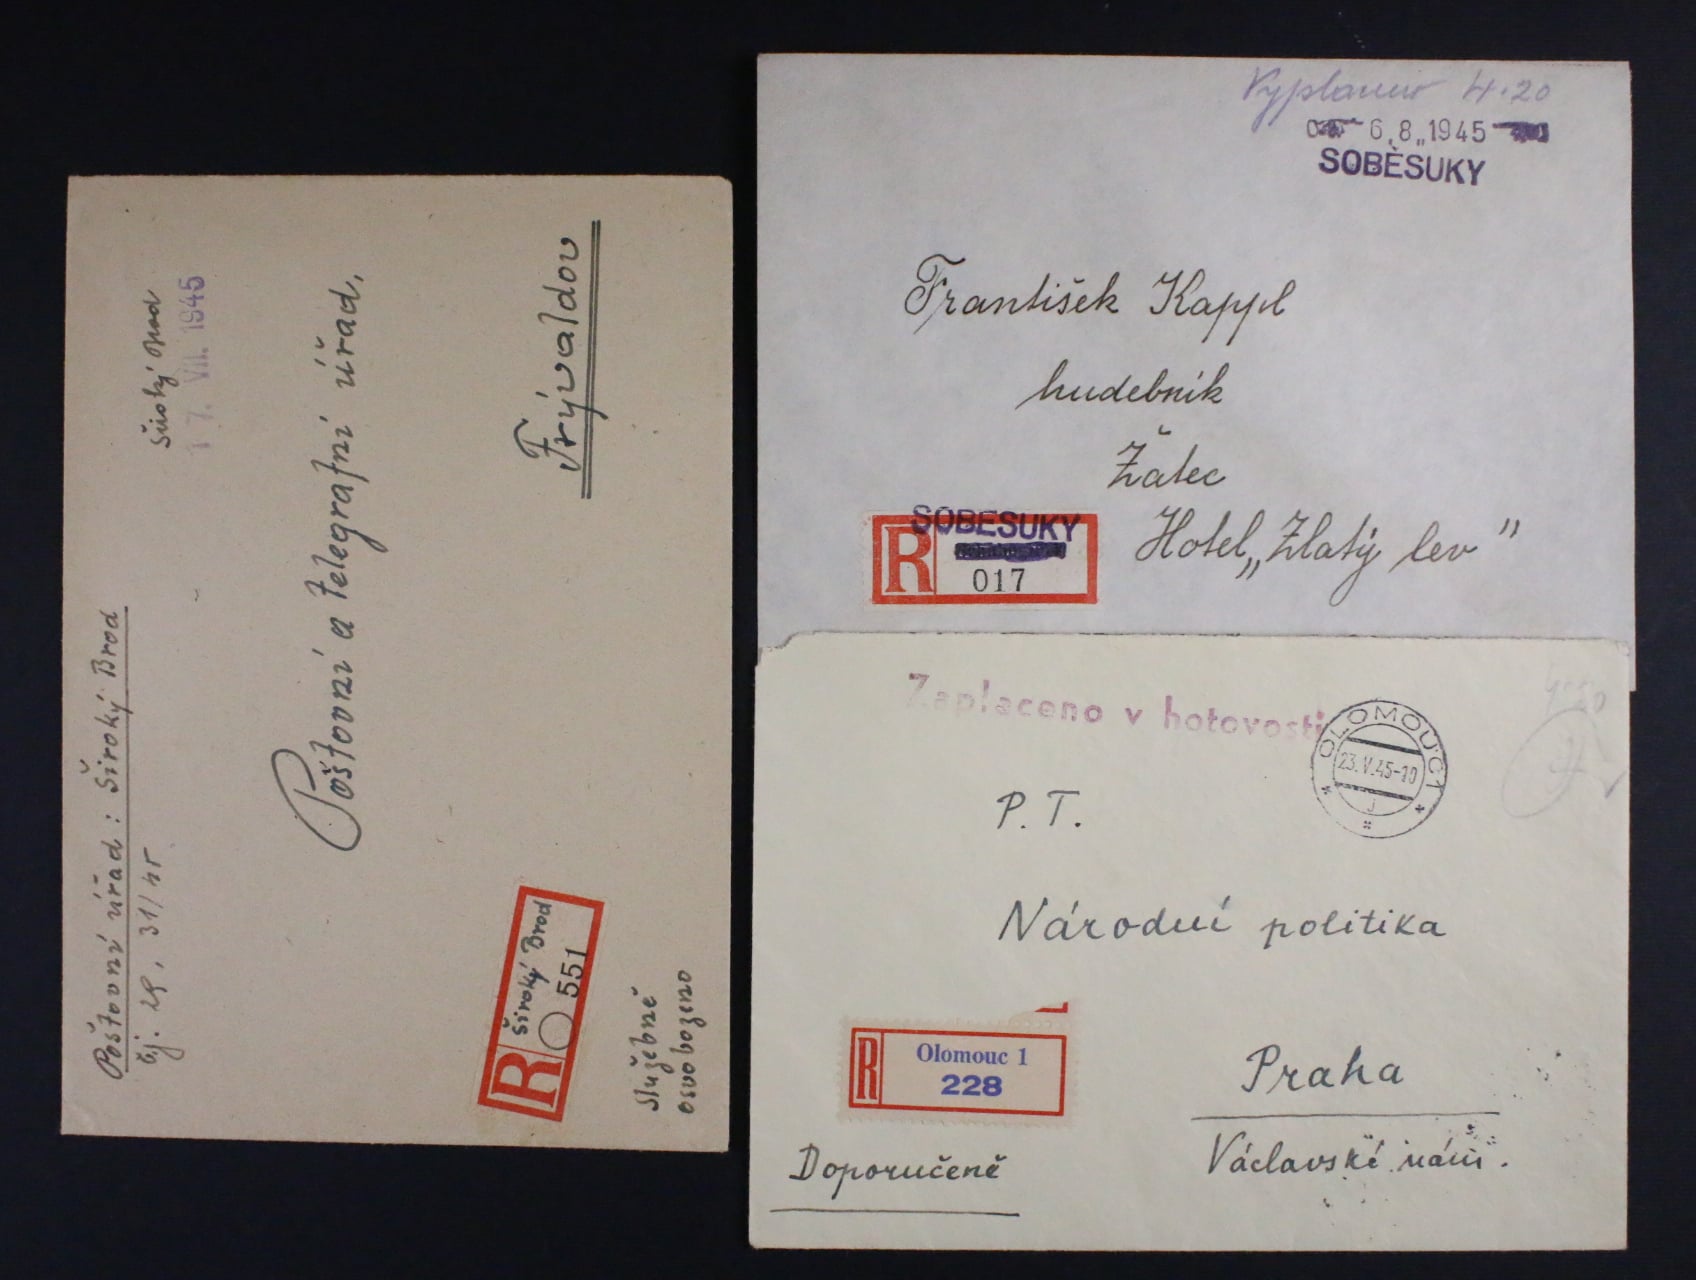 Poštovní úřad: Široký Brod
Široký Brod
17. VII. 1945
Poštovní a telegrafní úřad,
Frývaldov
R Široký Brod
551
Služebně
osvobozeno
Vyplaceno 4.20
6.8.,1945
SOBĚSUKY
František Kappl
hudebník
Žatec
Hotel „Zlatý lev"
SOBĚSUKY
R
017
Zaplaceno v hotovosti
OLOMOUC 1
23.V.45-10
J
P. T.
Národní politika
R Olomouc 1
228
Praha
Václavské nám.
Doporučeně